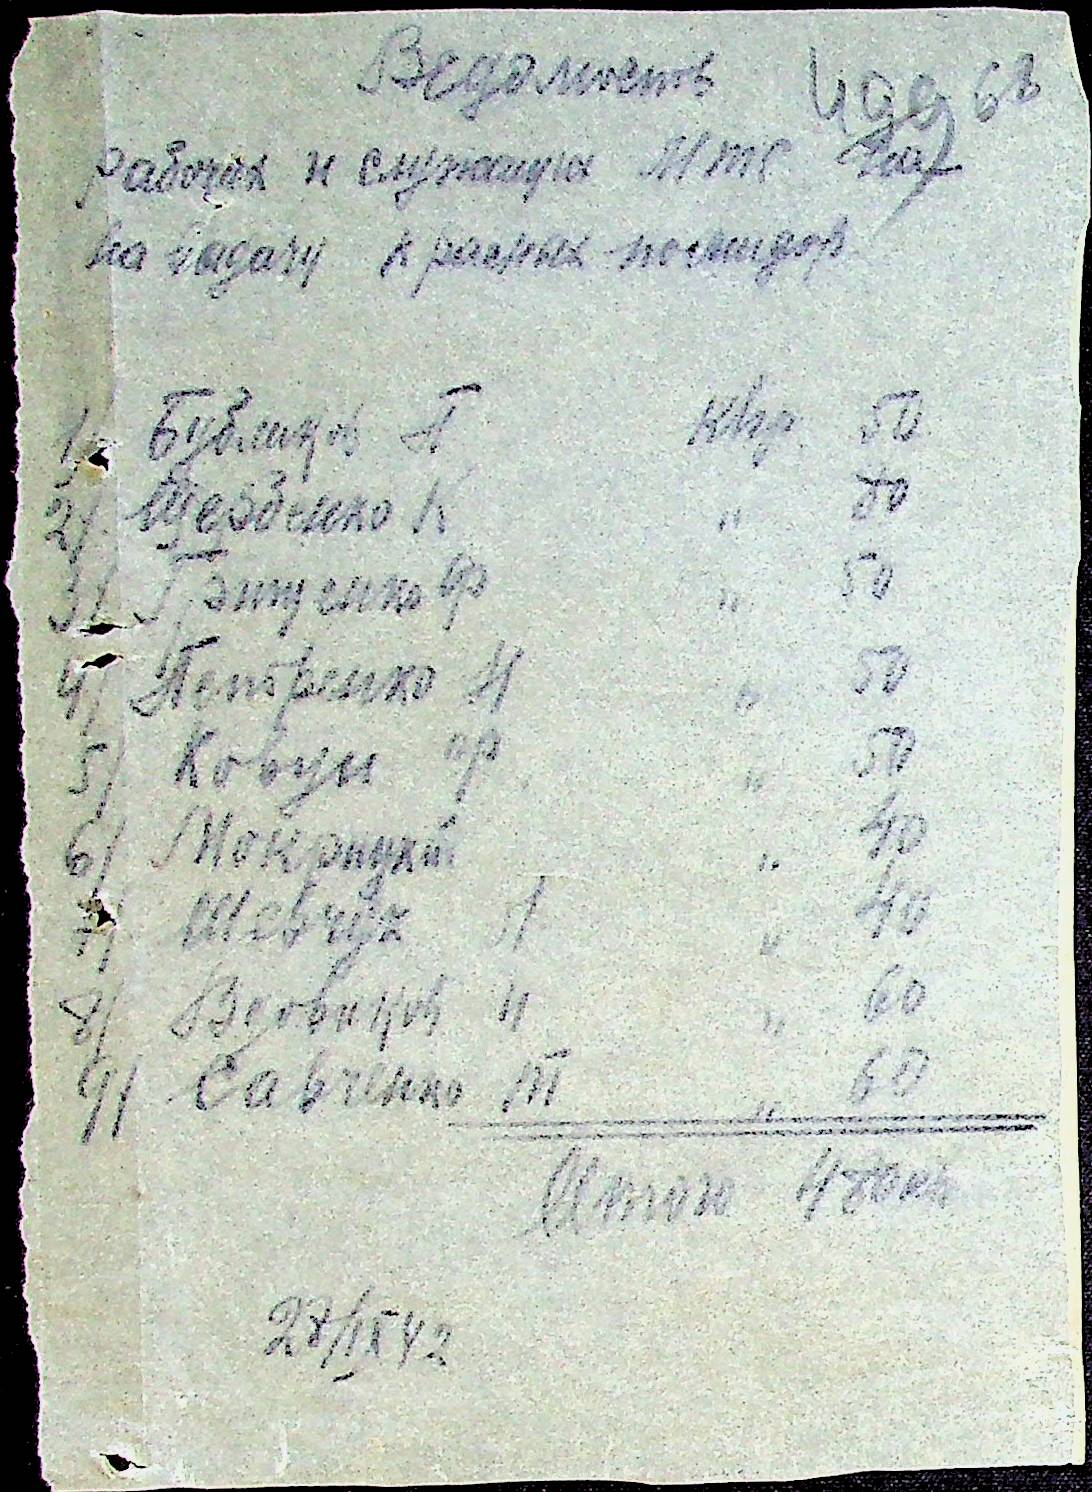 Ведомость 68
рабочих и служащих МТС
на выдачу красных помидор
1 Бублицов П Клгр 50
2/ Щербенко К " 80
3/ Грищенко Ф " 50
4/ Петренко И " 50
5/ Ковун Ф " 50
6/ Мокрицкий " 40
7/ Шевчук А " 40
8/ Вдовицов И " 60
9/ Савченко М " 60
Итого 480 кг
28/IX 42